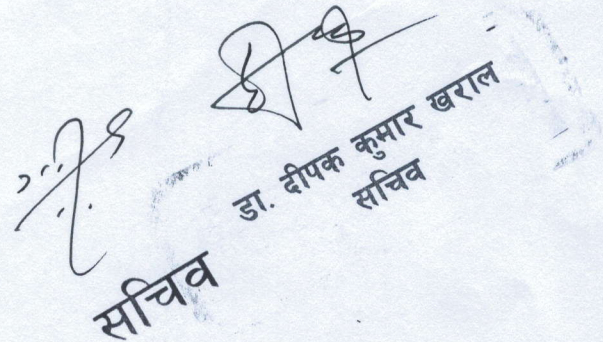 डा. दीपक कुमार खराल
सचिव
सचिव